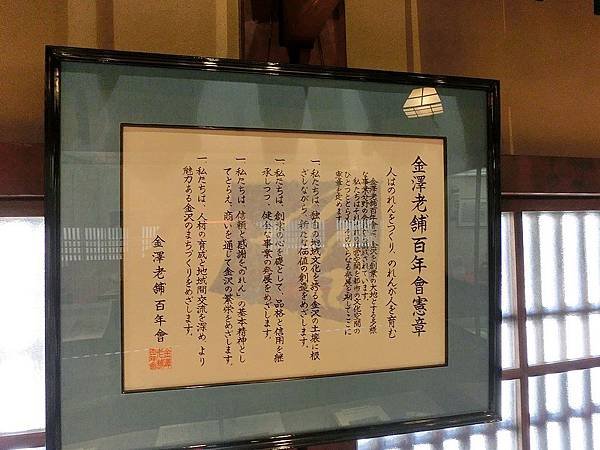 金澤老舗百年會憲章
人はのれんをつくり、のれんが人を育む
一、私たちは、独自の地域文化を誇る金沢の土壌に根
ざしながら、新たな価値の創造をめざします。
一、私たちは、創業の心を礎として、品格と信用を継
承しつつ、健全な事業の発展をめざします。
一、私たちは、信頼と感謝を「のれん」の基本精神とし
てとらえ、商いを通じて金沢の繁栄をめざします。
一、私たちは、人材の育成と地域間交流を深め、より
魅力ある金沢のまちづくりをめざします。
金澤老舗百年會